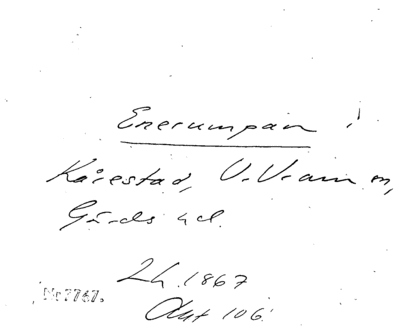 Enerumpan i
Kårestad, V. Vram sn,
Gärds hd.
Lh. 1867
Nr 7767.
Akt 106.